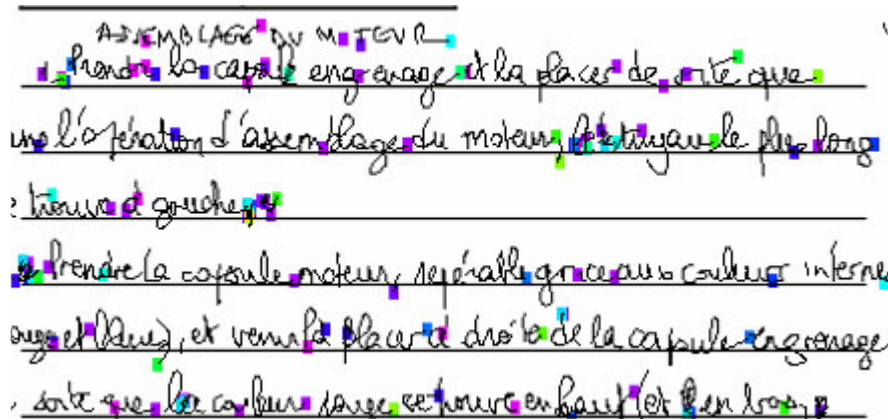 ASSEMBLAGE DU MOTEUR
Prendre la capsule engrenage et la placer de sorte que
l'opération d'assemblage du moteur, le tuyau le plus long
trouve à gauche
Prendre la capsule moteur, repérable grace aux couleurs internes
et bleu), et venir la placer à droite de la capsule engrenage
sorte que les couleurs rouge se trouve en haut (et en bas)